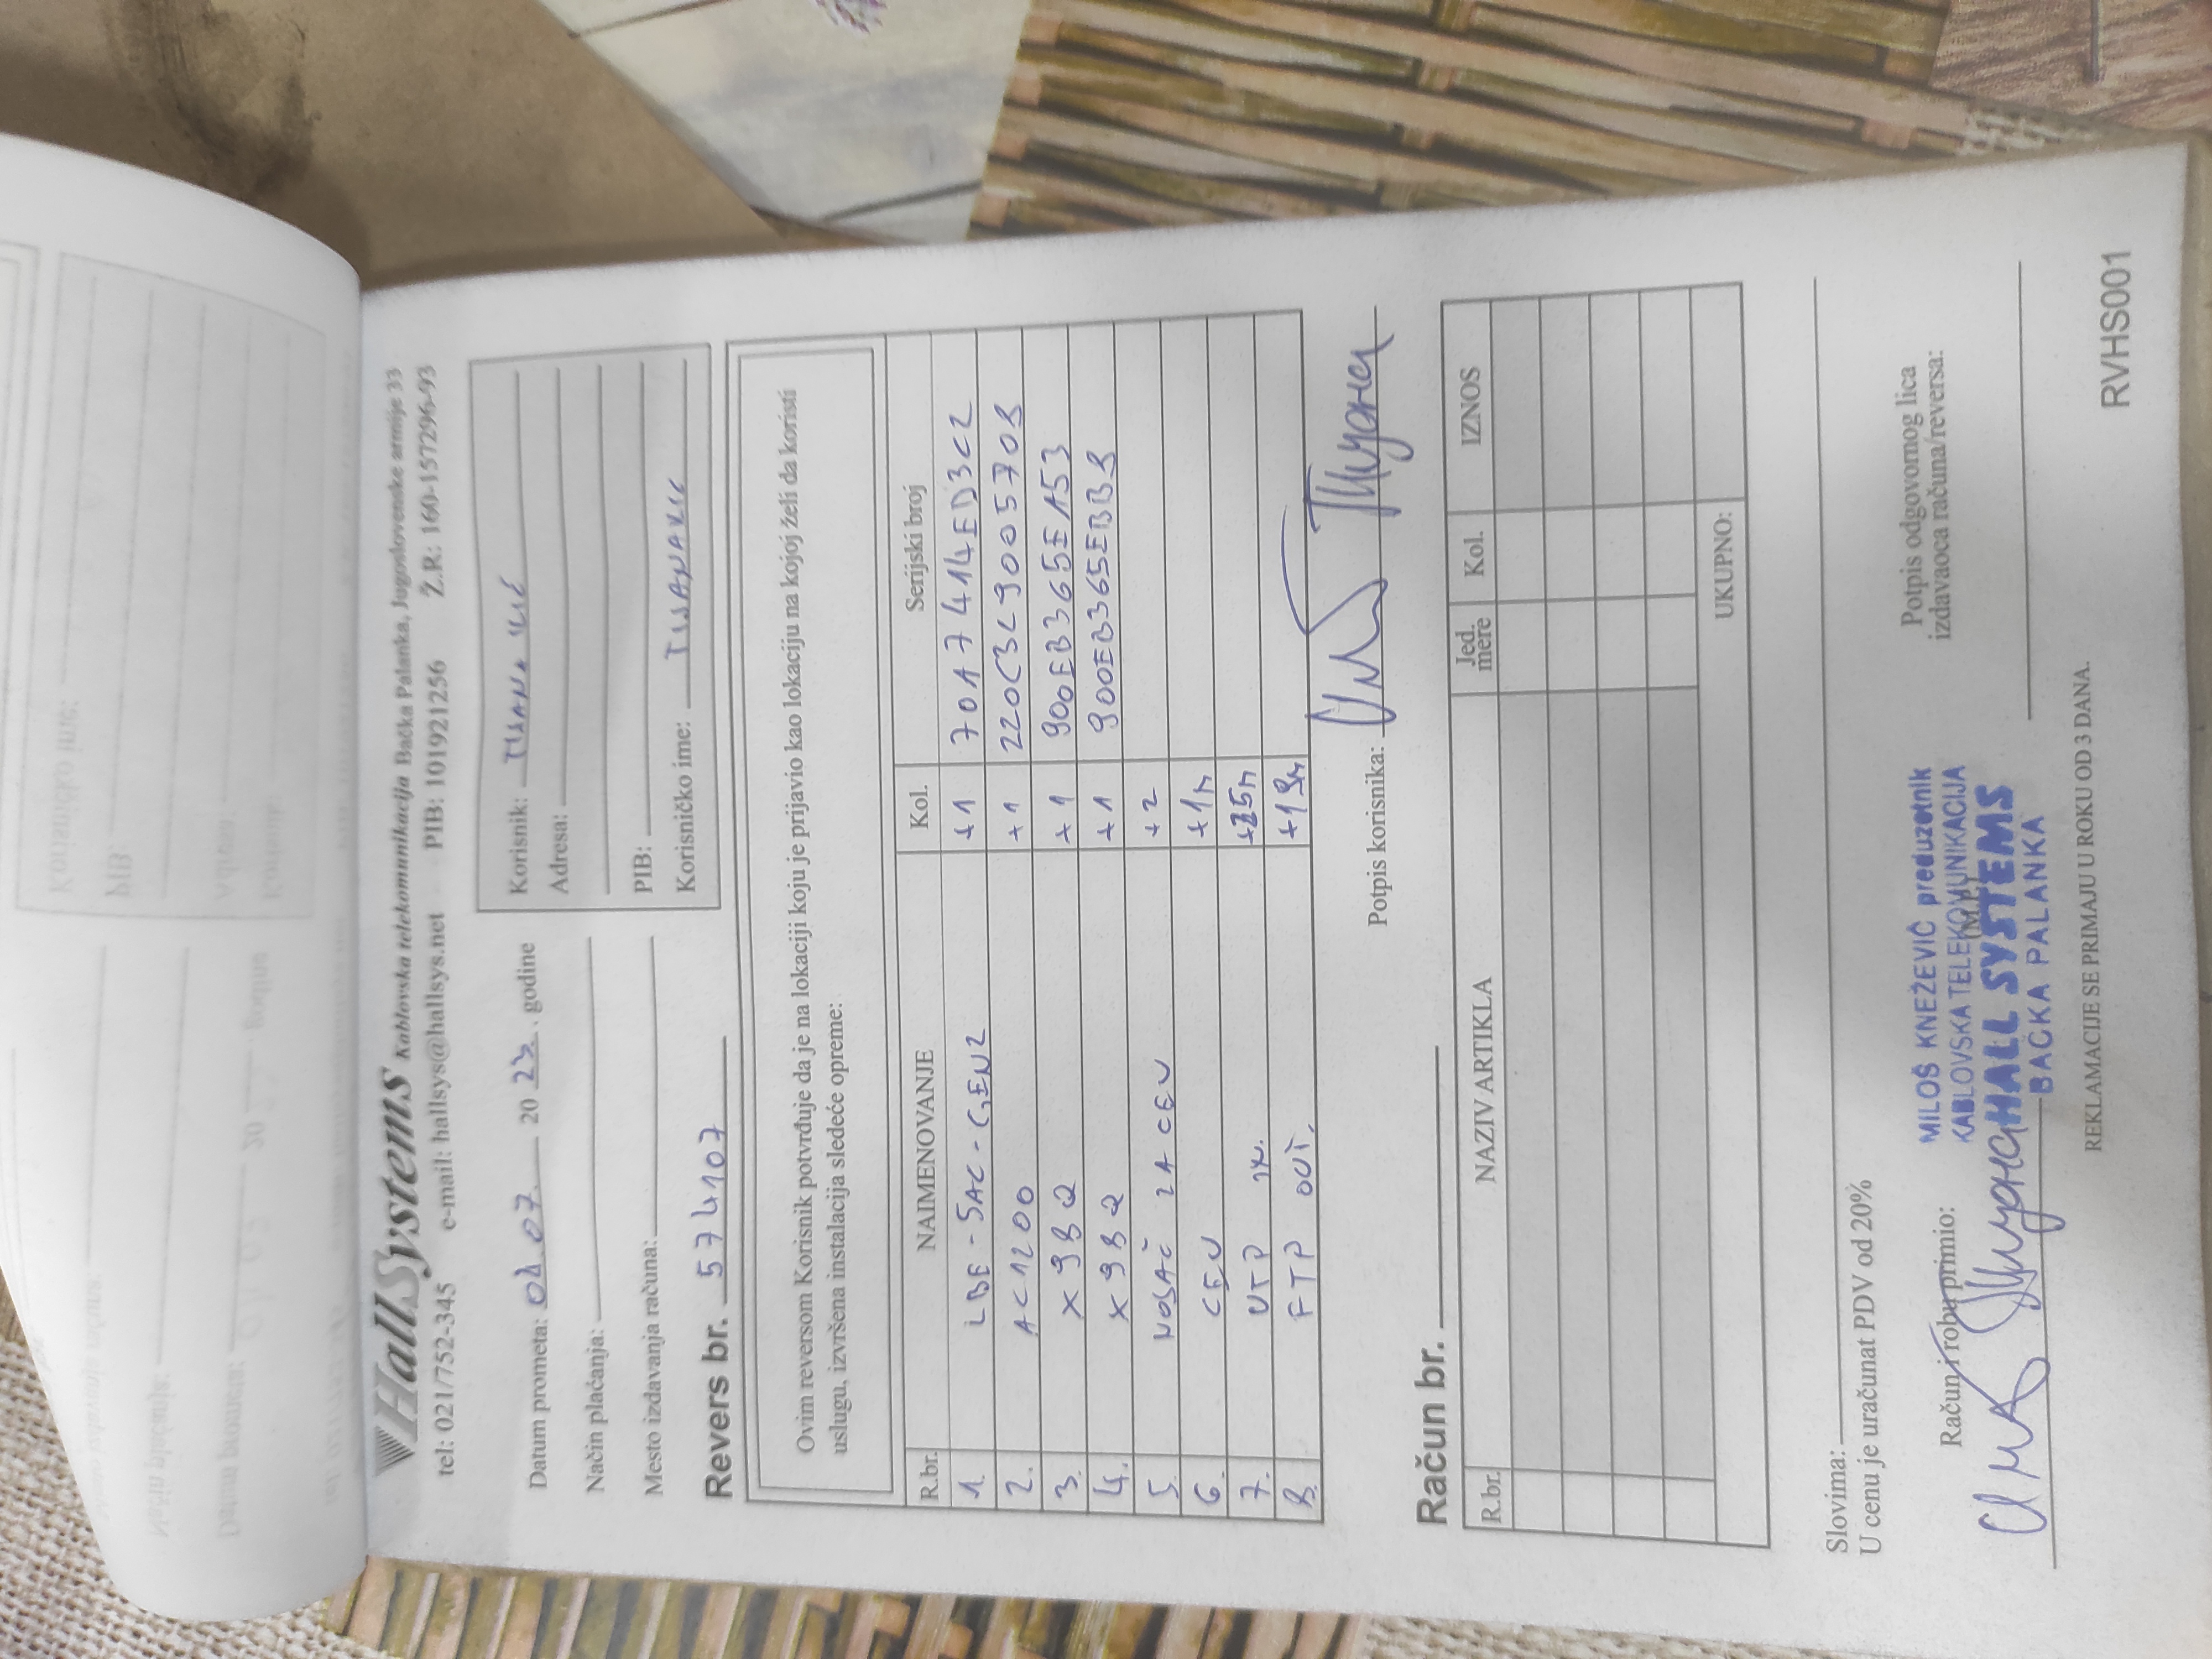 HallSystems Kablovska telekomunikacija Bačka Palanka, Jugoslovenske armije 33
tel: 021/752-345 e-mail: hallsys@hallsys.net PIB: 101921256 Ž.R: 160-157296-93
Datum prometa: 04.07. 20 23. godine
Način plaćanja:
Mesto izdavanja računa:
Korisnik:
Adresa:
PIB:
Korisničko ime:
Revers br. 574107
Ovim reversom Korisnik potvrđuje da je na lokaciji koju je prijavio kao lokaciju na kojoj želi da koristi
uslugu, izvršena instalacija sledeće opreme:
R.br. NAIMENOVANJE Kol. Serijski broj
1. LBE-5AC-GEN2 +1 70A7414ED3C2
2. AC1200 +1 220C3L9005708
3. X98Q +1 900EB365E153
4. X98Q +1 900EB365EBB8
5. NOSAČ ZA CEV +2
6. CEV +1m
7. UTP IN.
8. FTP OUT. +19m
Potpis korisnika: Илић Тијана
Račun br.
R.br. NAZIV ARTIKLA Jed. mere Kol. IZNOS
UKUPNO:
Slovima:
U cenu je uračunat PDV od 20%
Račun i robu primio:
Илић Тијана
MILOŠ KNEŽEVIĆ preduzetnik
KABLOVSKA TELEKOMUNIKACIJA
HALL SYSTEMS
BAČKA PALANKA
Potpis odgovornog lica
izdavaoca računa/reversa:
REKLAMACIJE SE PRIMAJU U ROKU OD 3 DANA.
RVHS001